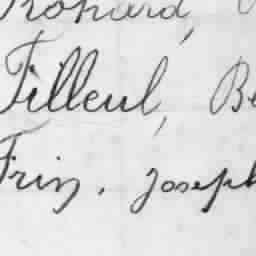 Rohard,
Tilleul, Be
Frin. Joseph